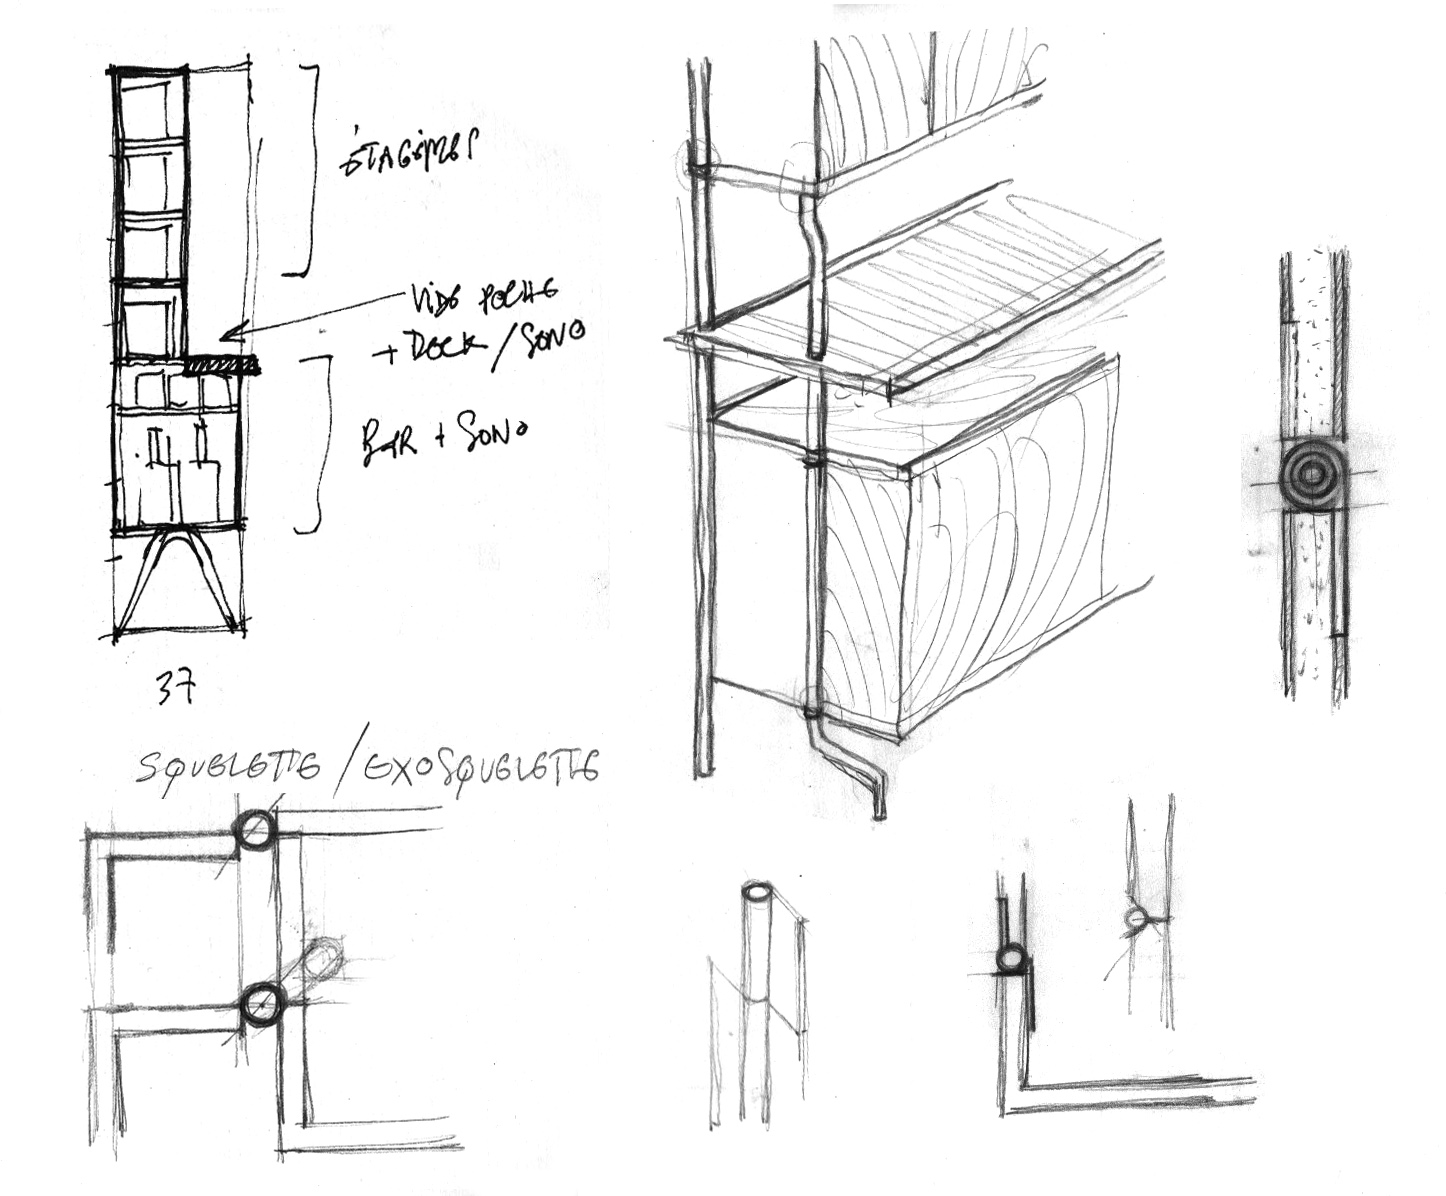 ÉTAGÈRES
VIDE POCHE
+ DOCK / SONO
BAR + SONO
37
SQUELETTE / EXOSQUELETTE